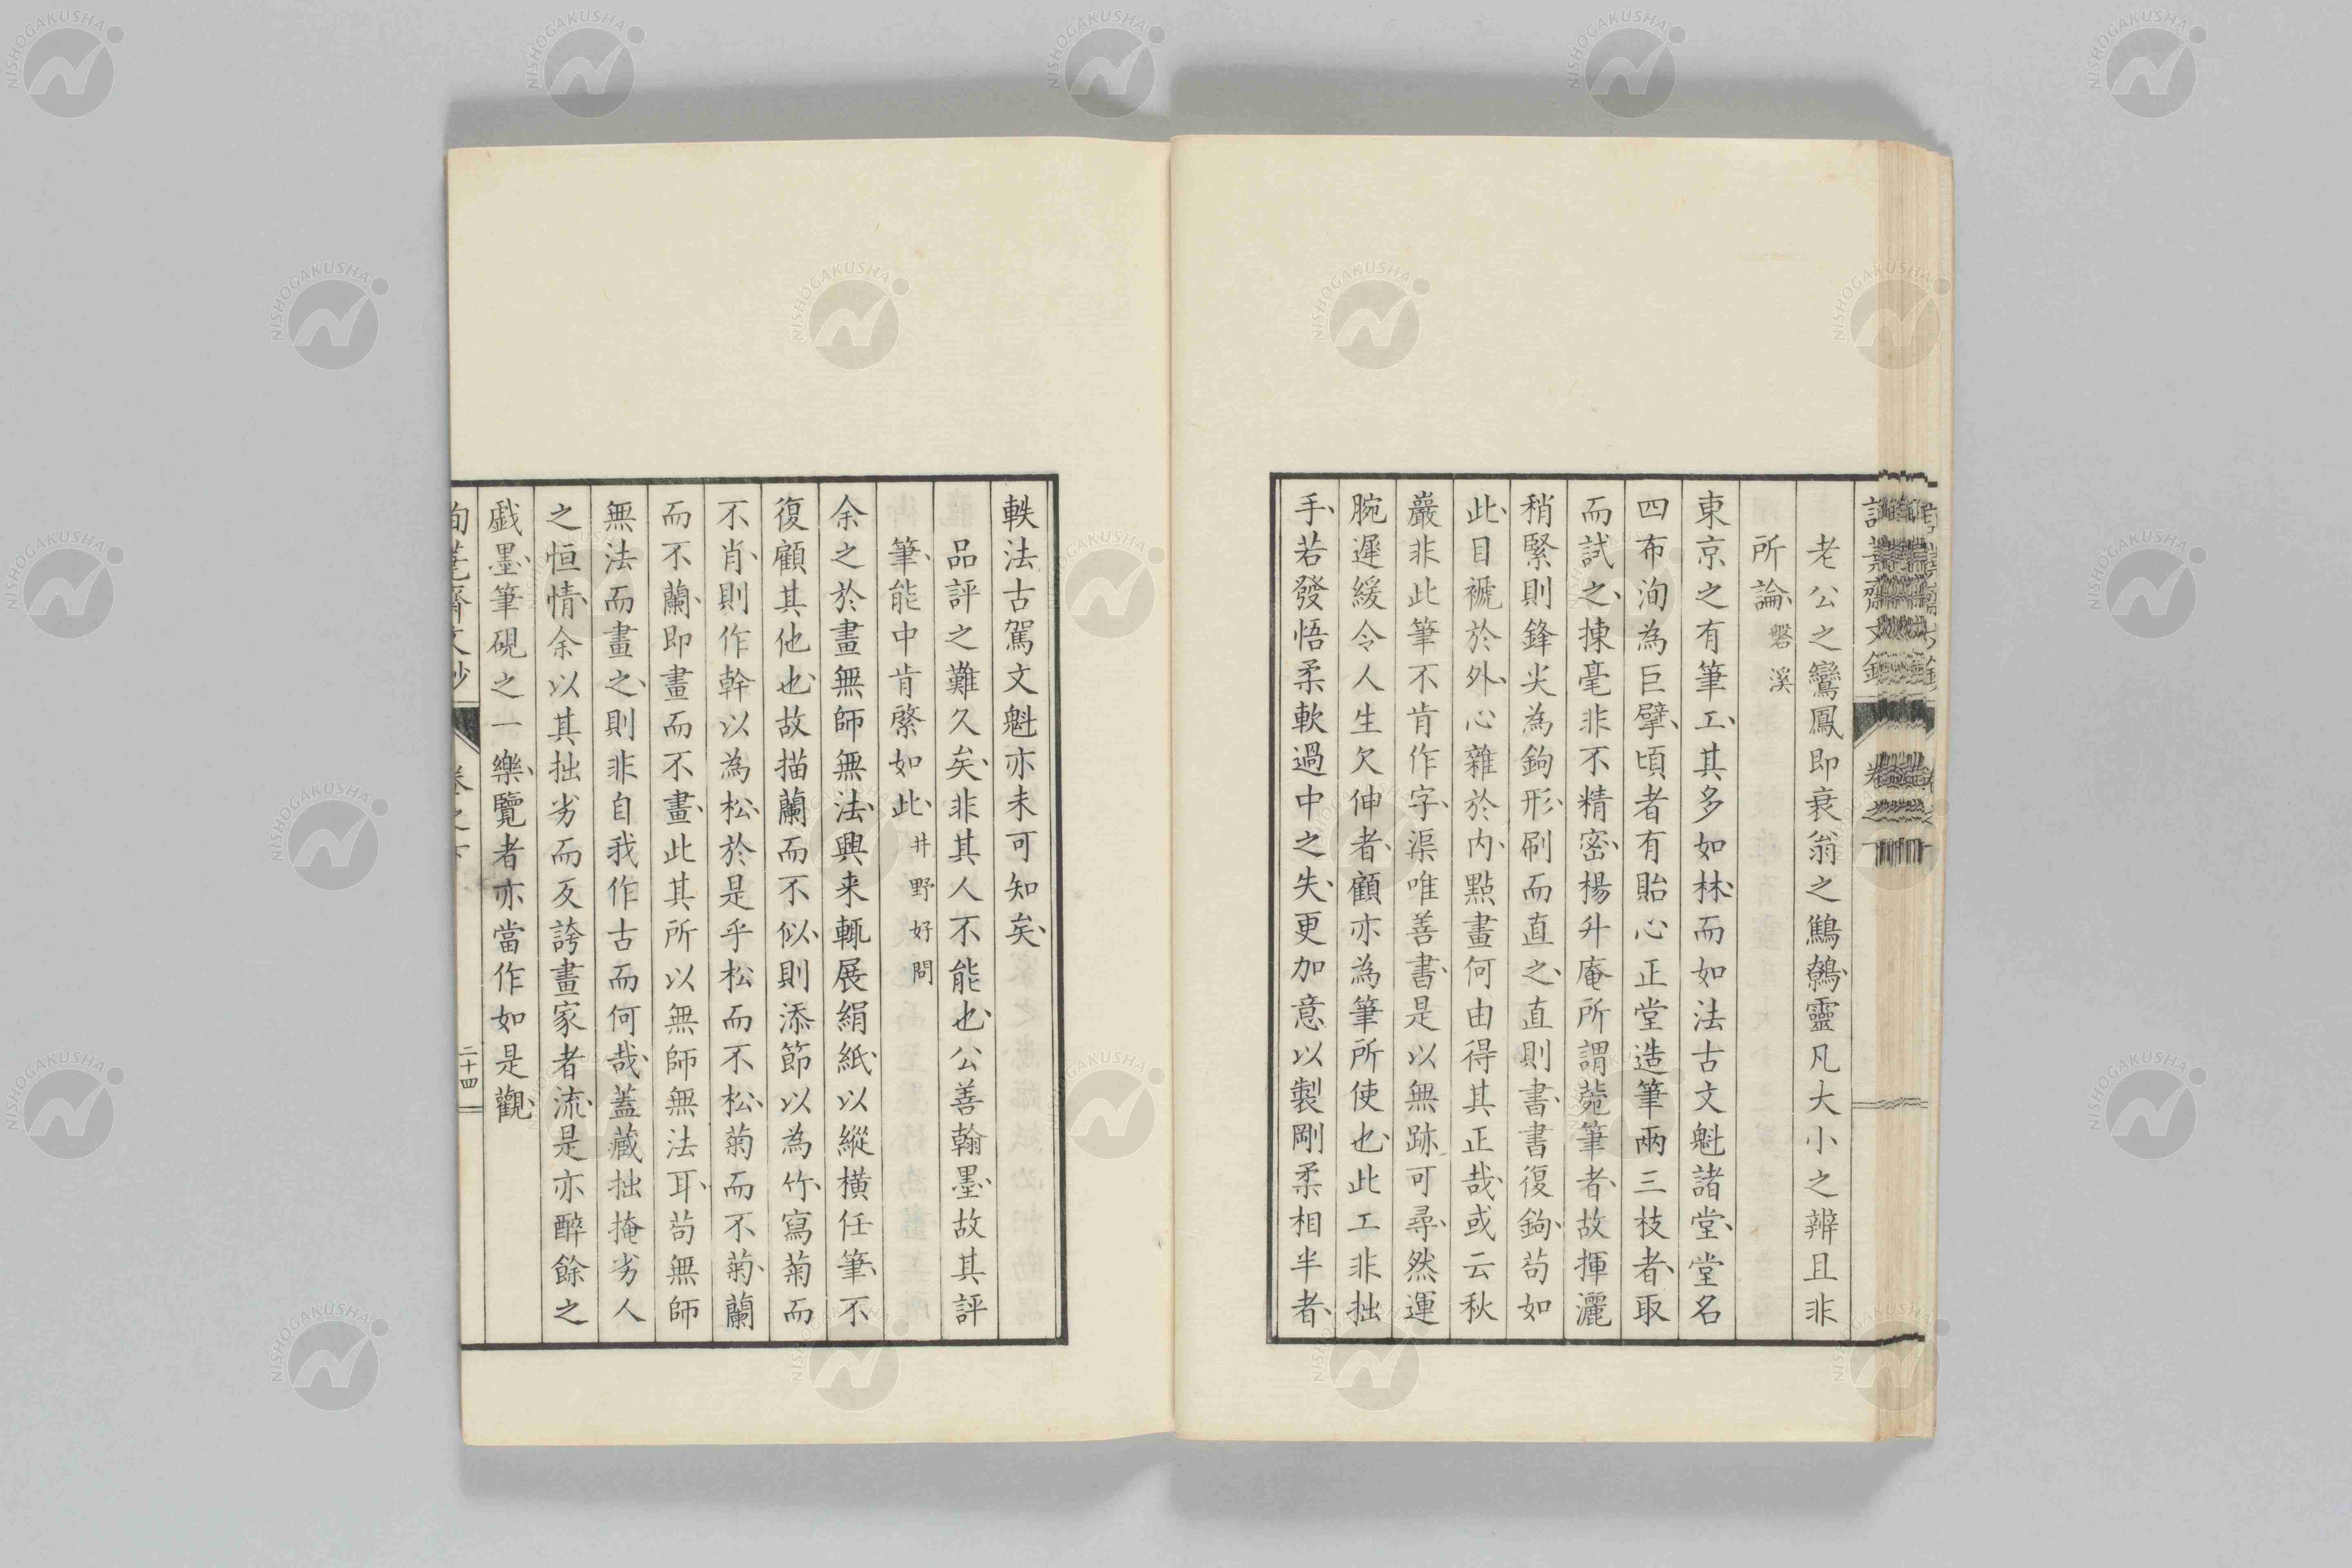 老公之鸞鳳即衰翁之鷦鷯、靈凡大小之辨且非
所論、磐溪
東京之有筆工、其多如林、而如法古文魁諸堂、堂名
四布洵為巨擘、頃者有貽心正堂造筆兩三枝者、取
而試之、揀毫非不精密、楊升庵所謂菀筆者、故揮灑
稍緊則鋒尖為鉤形、刷而直之、直則書、書復鉤、苟如
此、目褫於外、心雜於内、點畫何由得其正哉、或云秋
巖非此筆不肯作字、渠唯善書、是以無跡可尋、然運
腕遲緩令人生欠伸者、顧亦為筆所使也、此工非拙
手、若發悟柔軟過中之失、更加意以製剛柔相半者、
軼法古駕文魁亦未可知矣、
品評之難久矣、非其人不能也、公善翰墨、故其評
筆、能中肯綮如此、井野好問
余之於畫無師無法、興来輒展絹紙、以縱橫任筆、不
復顧其他也、故描蘭而不似、則添節以為竹、寫菊而
不肖、則作幹以為松、於是乎松而不松、菊而不菊、蘭
而不蘭、即畫而不畫、此其所以無師無法耳、苟無師
無法而畫之、則非自我作古而何哉、蓋藏拙掩劣人
之恒情、余以其拙劣而反誇畫家者流、是亦醉餘之
戯墨、筆硯之一樂、覽者亦當作如是觀、
二十四